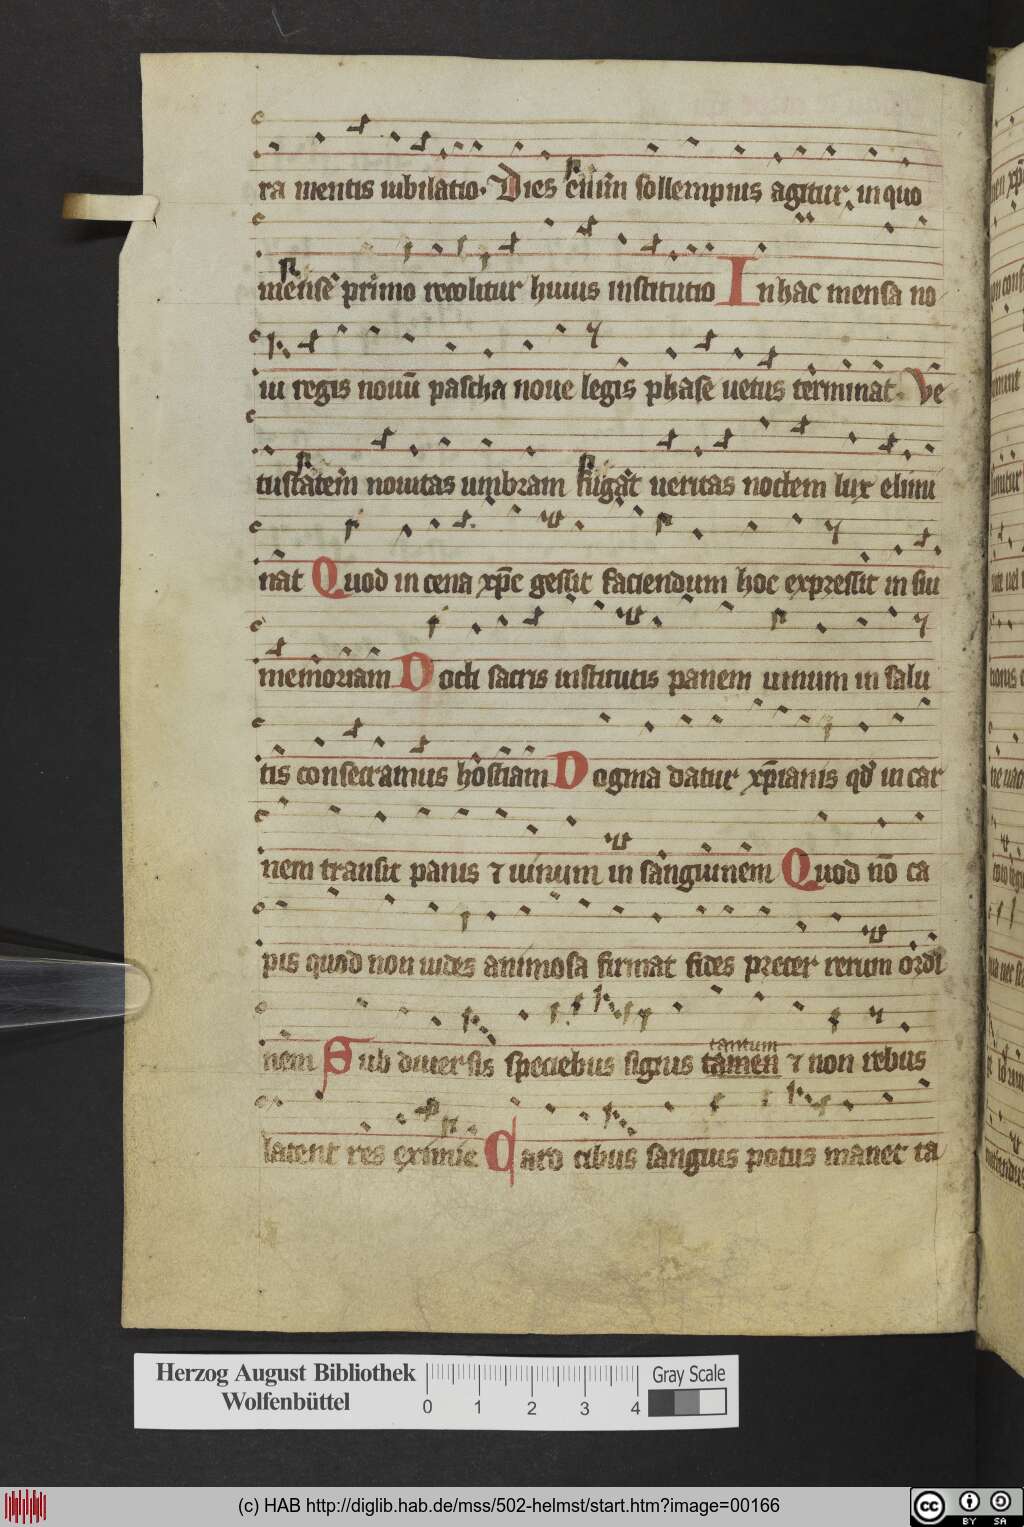 ra mentis iubilatio. Dies enim sollempnis agitur, in quo
mense primo recolitur huius institutio In hac mensa no
ui regis nouū pascha noue legis phase uetus terminat. Ve
tustatem nouitas umbram fugat ueritas noctem lux elimi
nat Quod in cena xp̄c gessit faciendum hoc expressit in sui
memoriam Docti sacris institutis panem uinum in salu
tis consecramus hostiam Dogma datur xp̄ianis qd' in car
nem transit panis ⁊ uinum in sanguinem Quod nō ca
pis quod non uides animosa firmat fides preter rerum ordi
nem Sub diuersis speciebus signis tamen ⁊ non rebus
tantum
latent res eximie Caro cibus sanguis potus manet ta
Herzog August Bibliothek
Wolfenbüttel
0 1 2 3 4
Gray Scale
(c) HAB http://diglib.hab.de/mss/502-helmst/start.htm?image=00166
cc BY SA